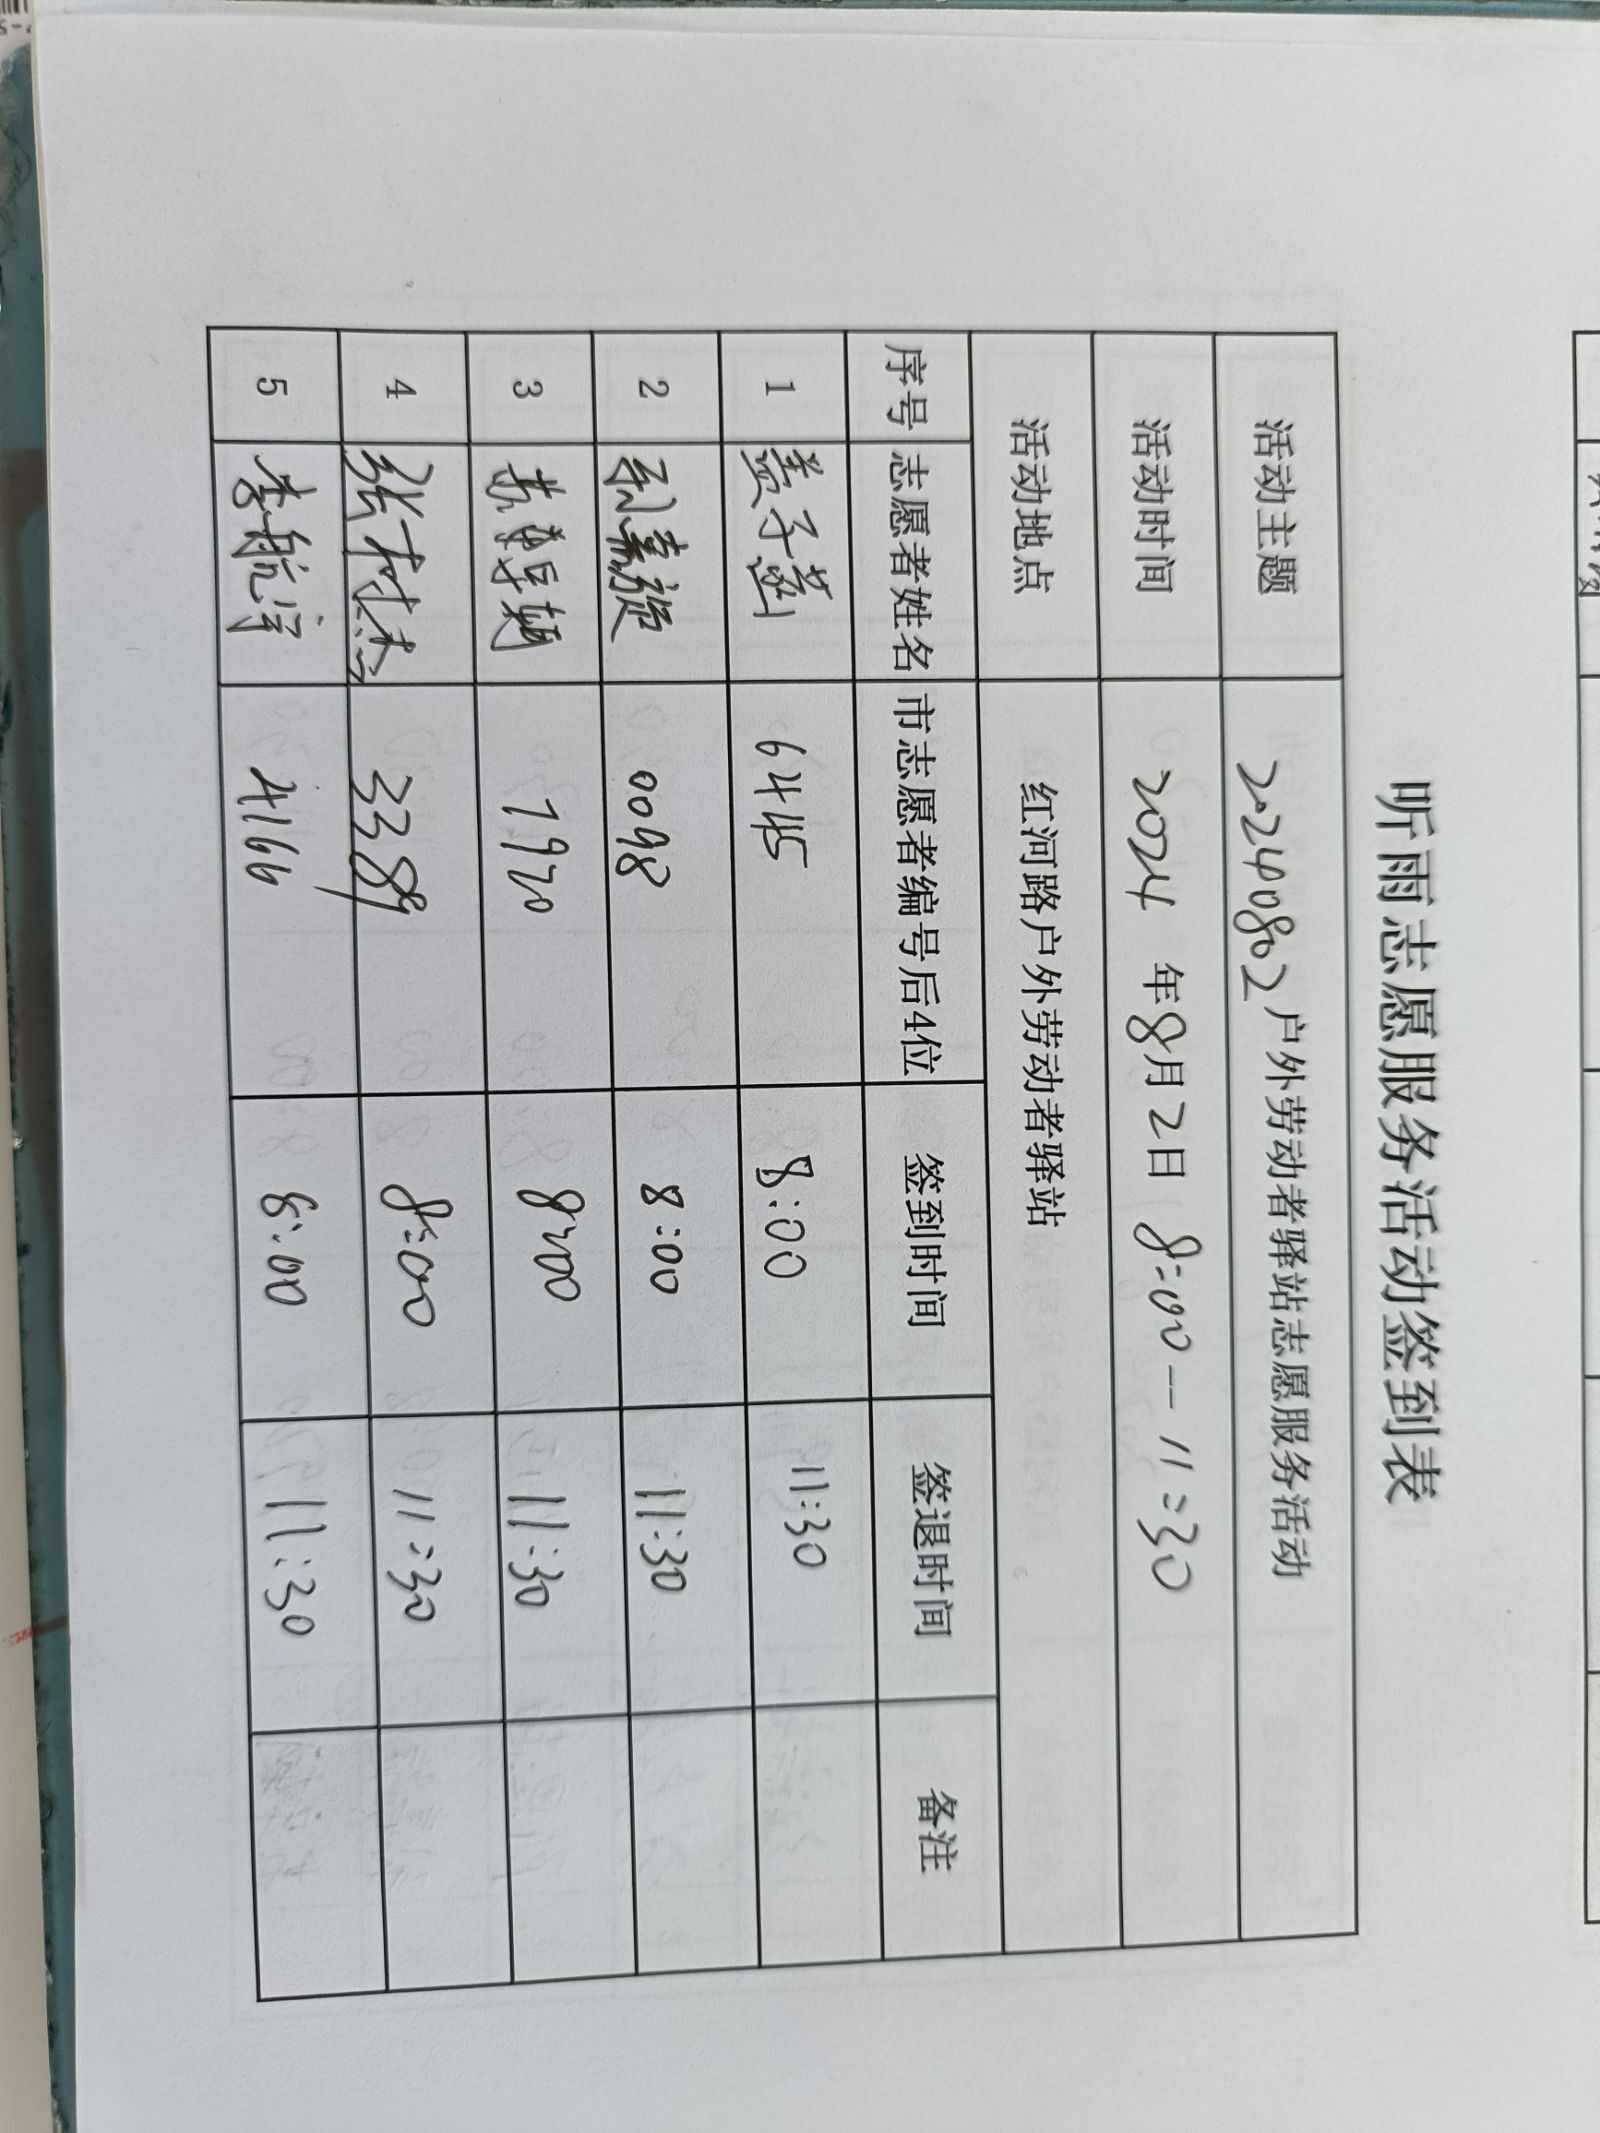 听雨志愿服务活动签到表
活动主题 20240802户外劳动者驿站志愿服务活动
活动时间 2024 年8月2日 8:00--11:30
活动地点 红河路户外劳动者驿站
序号 志愿者姓名 市志愿者编号后4位 签到时间 签退时间 备注
1 盖子菡 6445 8:00 11:30
2 孙嘉旋 0098 8:00 11:30
3 7920 8:00 11:30
4 张村杰 3389 8:00 11:30
5 李航宇 4166 8:00 11:30